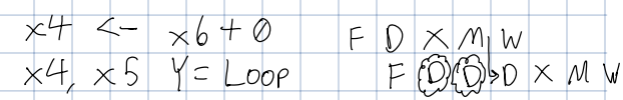 x4 <- x6 + 0 F D X M W
x4, x5 Y = Loop F D D D X M W